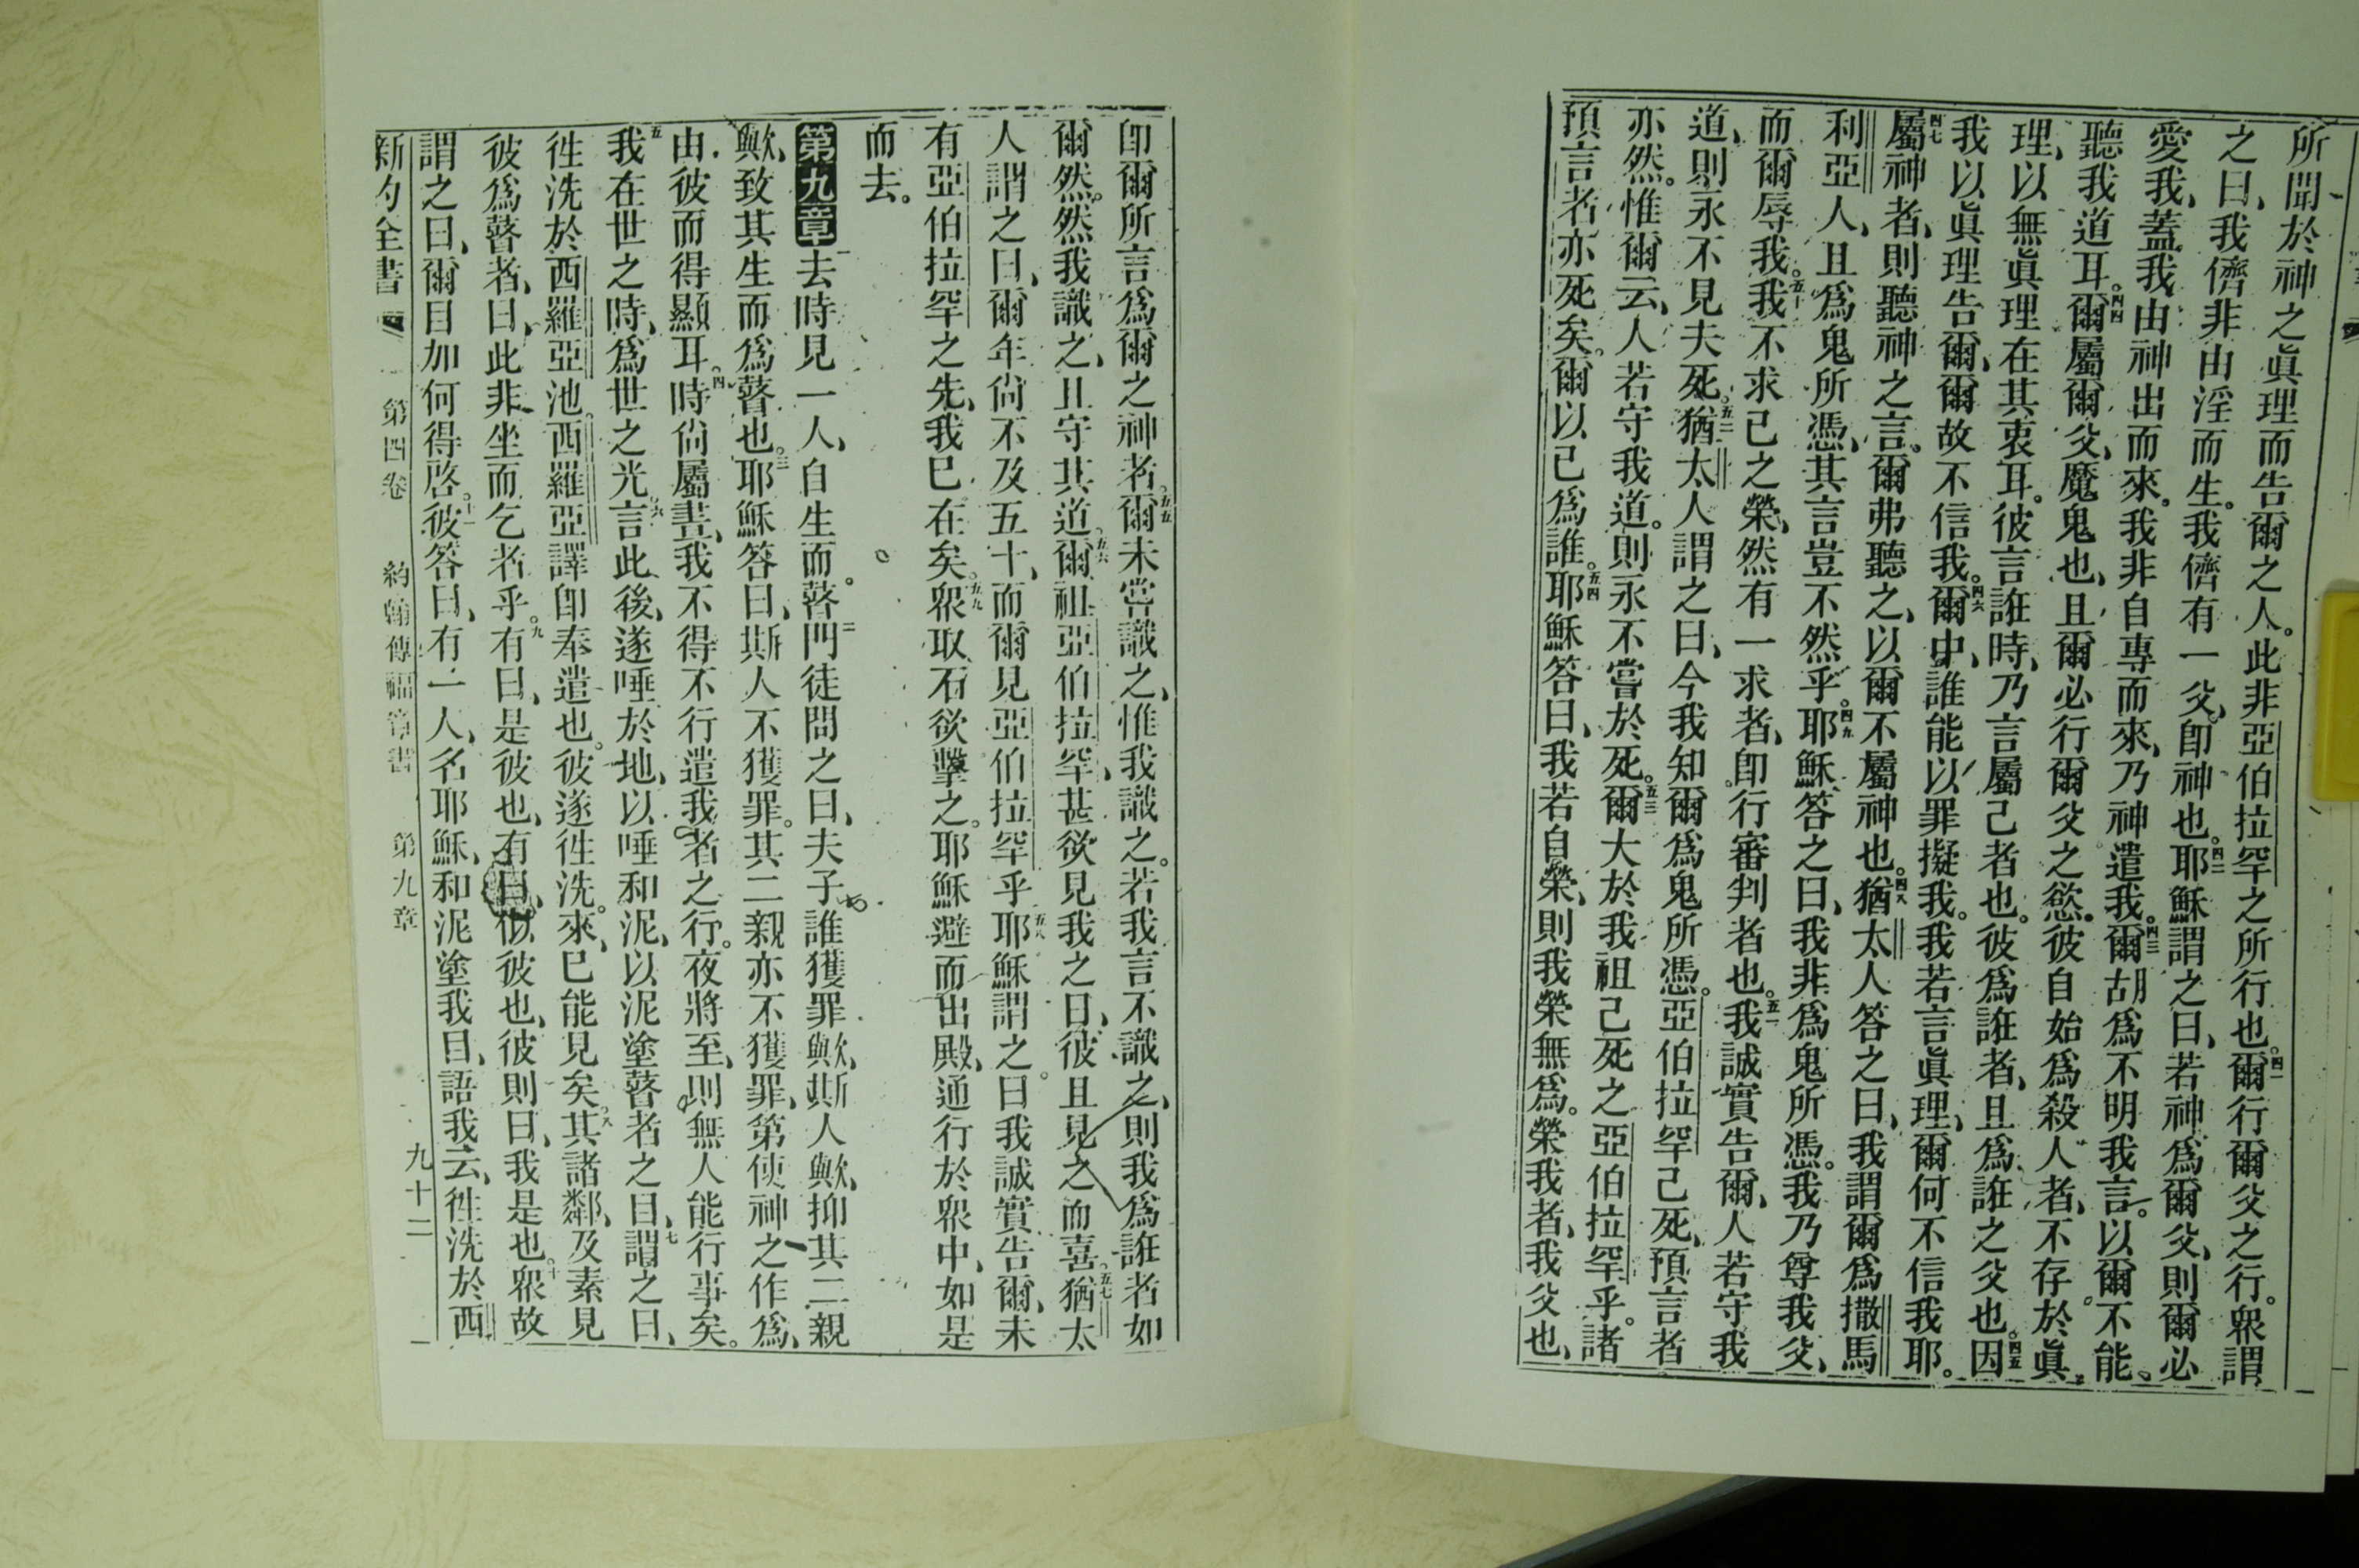 所聞於神之眞理而告爾之人。此非亞伯拉罕之所行也。四一爾行爾父之行。眾謂
之曰、我儕非由淫而生。我儕有一父、卽神也。四二耶穌謂之曰、若神爲爾父、則爾必
愛我、蓋我由神出而來。我非自專而來、乃神遣我。四三爾胡爲不明我言。以爾不能
聽我道耳。四四爾屬爾父、魔鬼也、且爾必行爾父之慾。彼自始爲殺人者、不存於眞
理、以無眞理在其衷耳。彼言誑時、乃言屬己者也。彼爲誑者、且爲誑之父也。四五因
我以眞理告爾、爾故不信我。四六爾中、誰能以罪擬我。我若言眞理、爾何不信我耶。
四七屬神者、則聽神之言。爾弗聽之、以爾不屬神也。四八猶太人答之曰、我謂爾爲撒馬
利亞人、且爲鬼所憑、其言豈不然乎。四九耶穌答之曰、我非爲鬼所憑。我乃尊我父、
而爾辱我。五十我不求己之榮、然有一求者、卽行審判者也。五一我誠實告爾、人若守我
道、則永不見夫死。五二猶太人謂之曰、今我知爾爲鬼所憑。亞伯拉罕己死、預言者
亦然。惟爾云、人若守我道。則永不嘗於死。五三爾大於我祖己死之亞伯拉罕乎。諸
預言者、亦死矣。爾以己爲誰。五四耶穌答曰、我若自榮、則我榮無爲。榮我者、我父也、
卽爾所言爲爾之神者。五五爾未嘗識之、惟我識之。若我言不識之、則我爲誑者如
爾然。然我識之、且守其道。五六爾祖亞伯拉罕、甚欲見我之日、彼且見之而喜。五七猶太
人謂之曰、爾年尙不及五十、而爾見亞伯拉罕乎。五八耶穌謂之曰我誠實告爾、未
有亞伯拉罕之先、我已在矣。五九眾取石欲擊之。耶穌避而出殿、通行於眾中、如是
而去。
第九章一去時見一人、自生而瞽。二門徒問之曰、夫子誰獲罪歟、斯人歟、抑其二親
歟、致其生而爲瞽也。三耶穌答曰、斯人不獲罪。其二親亦不獲罪、第使神之作爲、
由彼而得顯耳。四時尙屬晝、我不得不行遣我者之行。夜將至、則無人能行事矣。
五我在世之時、爲世之光。六言此後、遂唾於地、以唾和泥、以泥塗瞽者之目、七謂之曰、
徃洗於西羅亞池。西羅亞譯卽奉遣也。彼遂徃洗。來、已能見矣。八其諸鄰、及素見
彼爲瞽者、曰、此非坐而乞者乎。九有曰、是彼也、有曰、似彼也、彼則曰、我是也。十眾故
謂之曰、爾目如何得啓。十一彼答曰、有一人、名耶穌、和泥塗我目、語我云、徃洗於西
新約全書 第四卷 約翰傳福音書 第九章 九十二